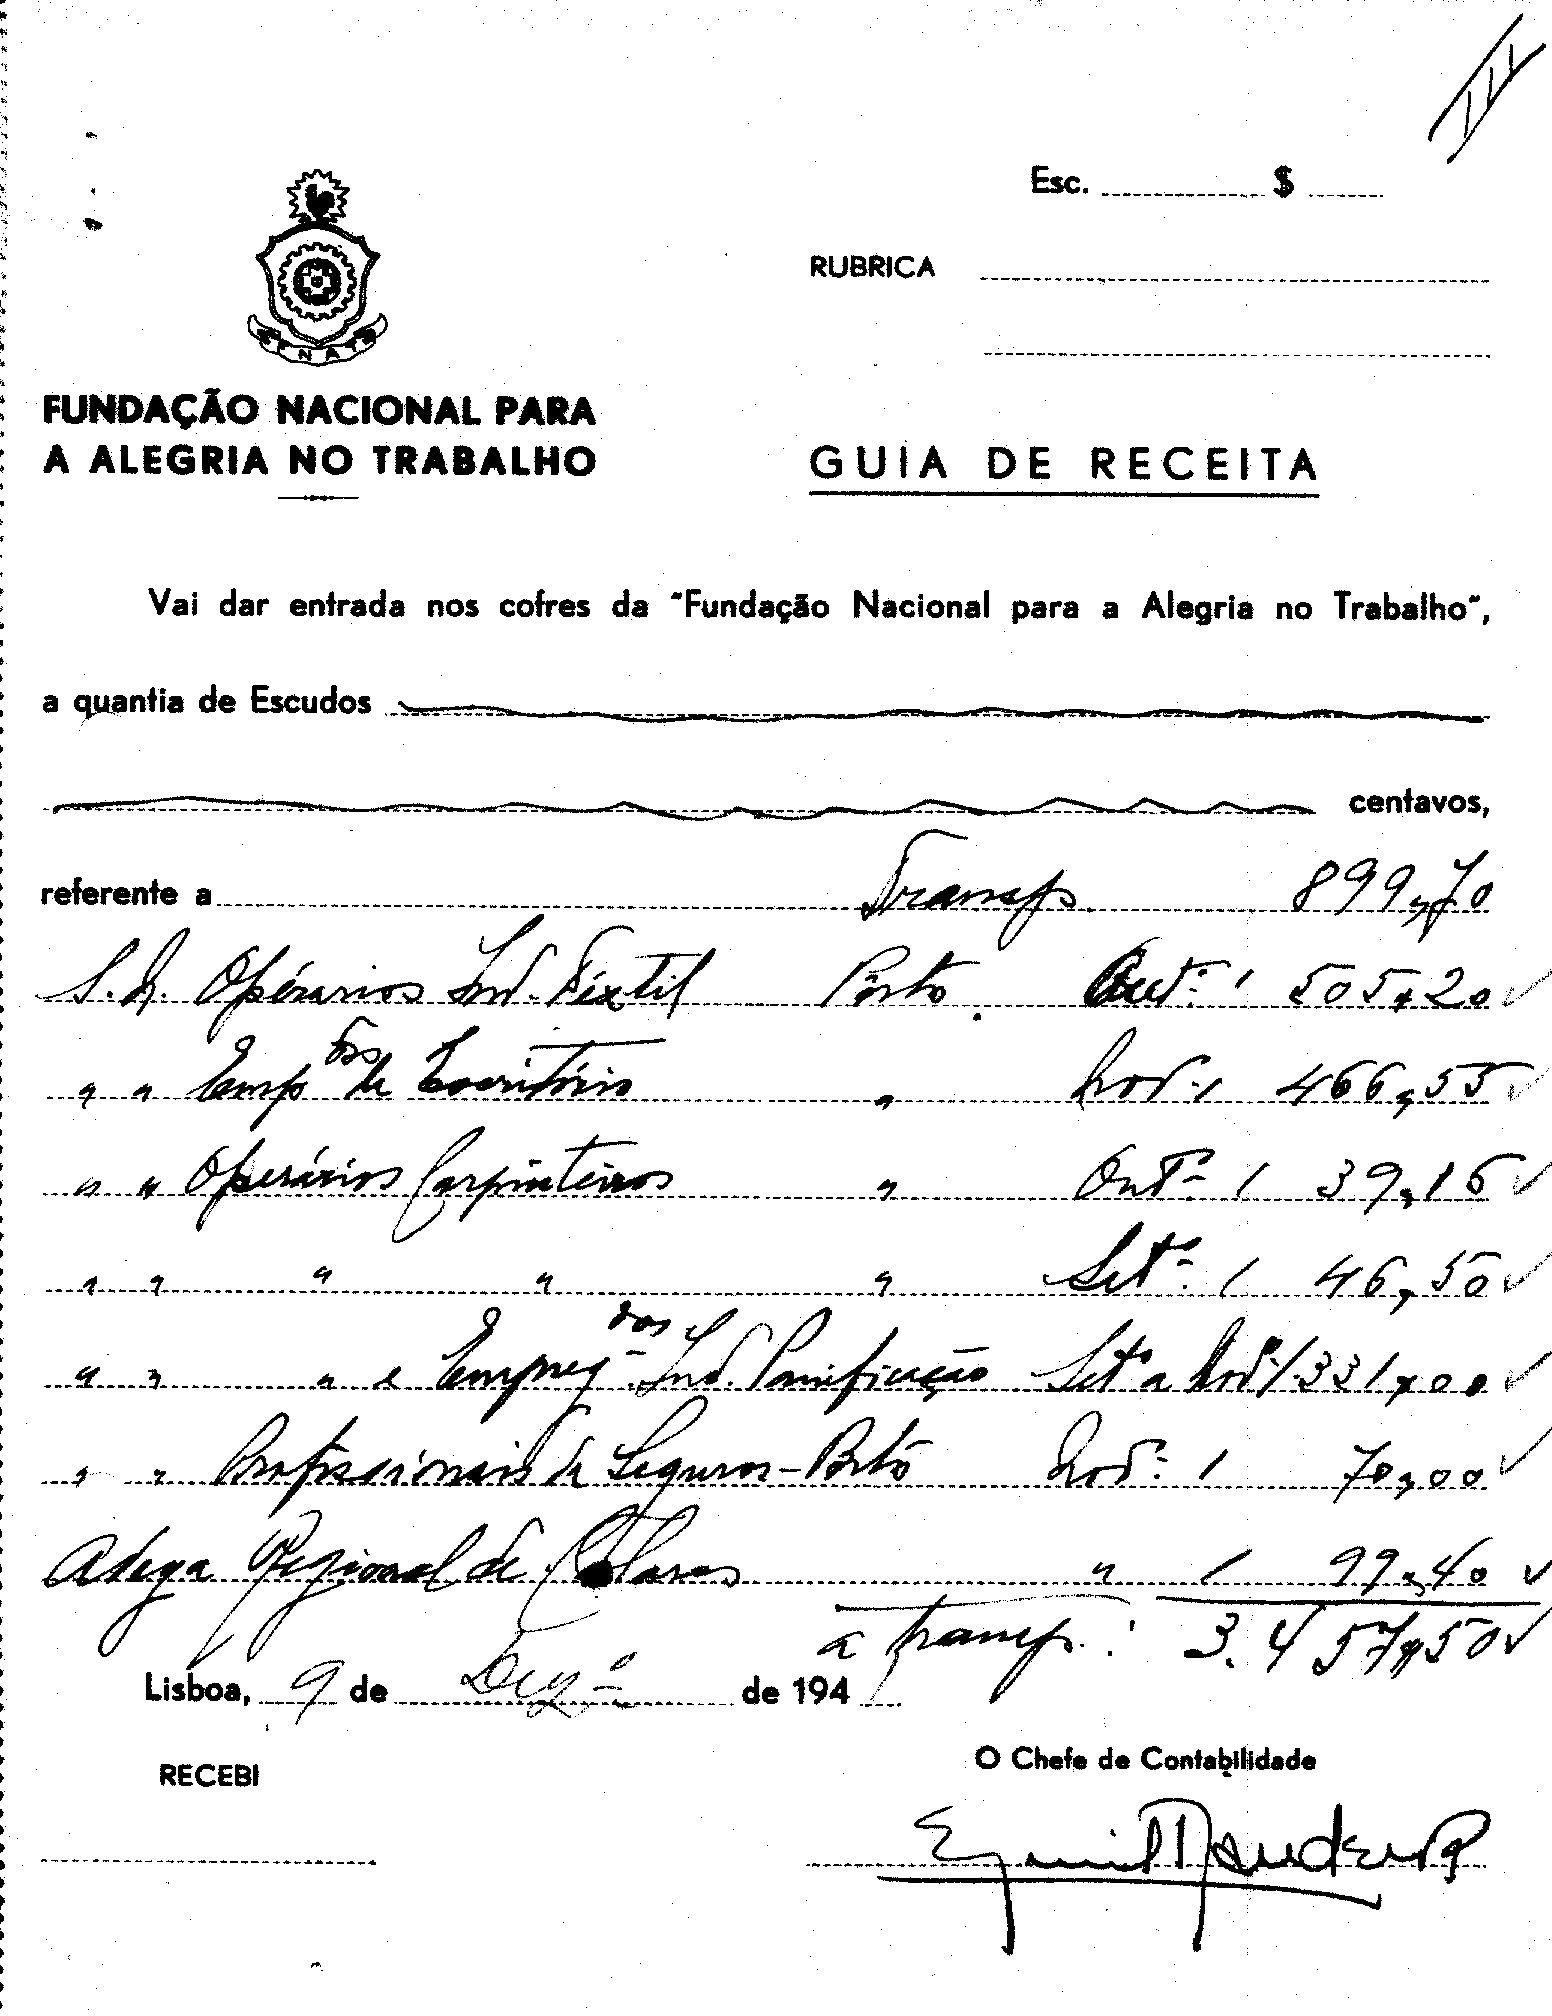 III
Esc. $
RUBRICA
FNAT
FUNDAÇÃO NACIONAL PARA
A ALEGRIA NO TRABALHO
GUIA DE RECEITA
Vai dar entrada nos cofres da "Fundação Nacional para a Alegria no Trabalho",
a quantia de Escudos
centavos,
referente a Transp. 899,70
S.N. Operários Ind. Têxtil Pôrto Out.º / 505,20
" " Emp.dos de Escritório " Nov.º / 466,55
" " Operários Carpinteiros " Out.º / 39,15
" " " " " Set.º / 46,50
" " " e Empreg.dos Ind. Panificação Set.º a Nov.º 1.331,00
" " Profissionais de Seguros - Pôrto Nov.º / 70,00
Adega Regional de Colares " / 99,40
a transp.: 3.457,50
Lisboa, 9 de Dez.º de 194
RECEBI
O Chefe de Contabilidade